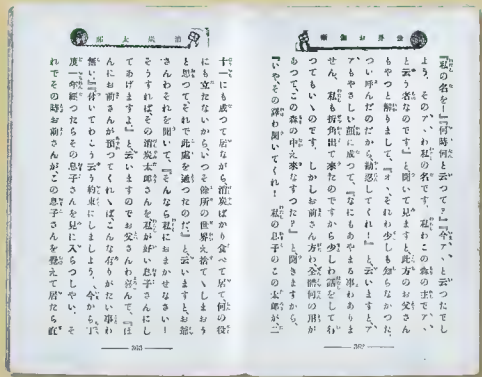 世界お伽噺
『私の名を!』『何時何と云つて?』『今ァ、と云つたでし
よう、そのァ、わ私の名です、私わこの森の主でァ、
と云う者なのです』と聞いて見ますと、此方のお父さん
もやつと解りまして、『ォ、それわ少しも知らなかつた、
つい呼んだのだから、勘忍してくれ!』と云いますと、ァ
ァもやさしい顔に成つて、『なにもあやまる事わありま
せん、私も折角出て来たのですから少しわ話をしてわ
つてもいゝのです。しかしお前さん方わ全體何の用が
あつて、この森の中え來なすつた?』と聞きますから、
『いや、その譯わ聞いてくれ!私の息子のこの太郎が、二
362
消炭太郎
十一にも成つて居ながら、消炭ばかり食べて居て何の役
にも立たないから、いつそ餘所の世界え捨てゝしまおう
と思つて、それで此處を通つたのだ』と云いますと、お爺
さんわそれを聞いて、『そんなら私におまかせなさい!
そうすればその消炭太郎さんを私が好い息子さんにし
てあげますよ』と云いますので、お父さんわ喜んで、『ほ
んにお前さんが預つてくれれば、こんな有りがたい事わ
無い』『付いてわこう云う約束にしましよう、今から丁
度一年經つたらその息子さんを見に入らつしやい、そ
れでその時お前さんがこの息子さんを覺えて居たら直
363